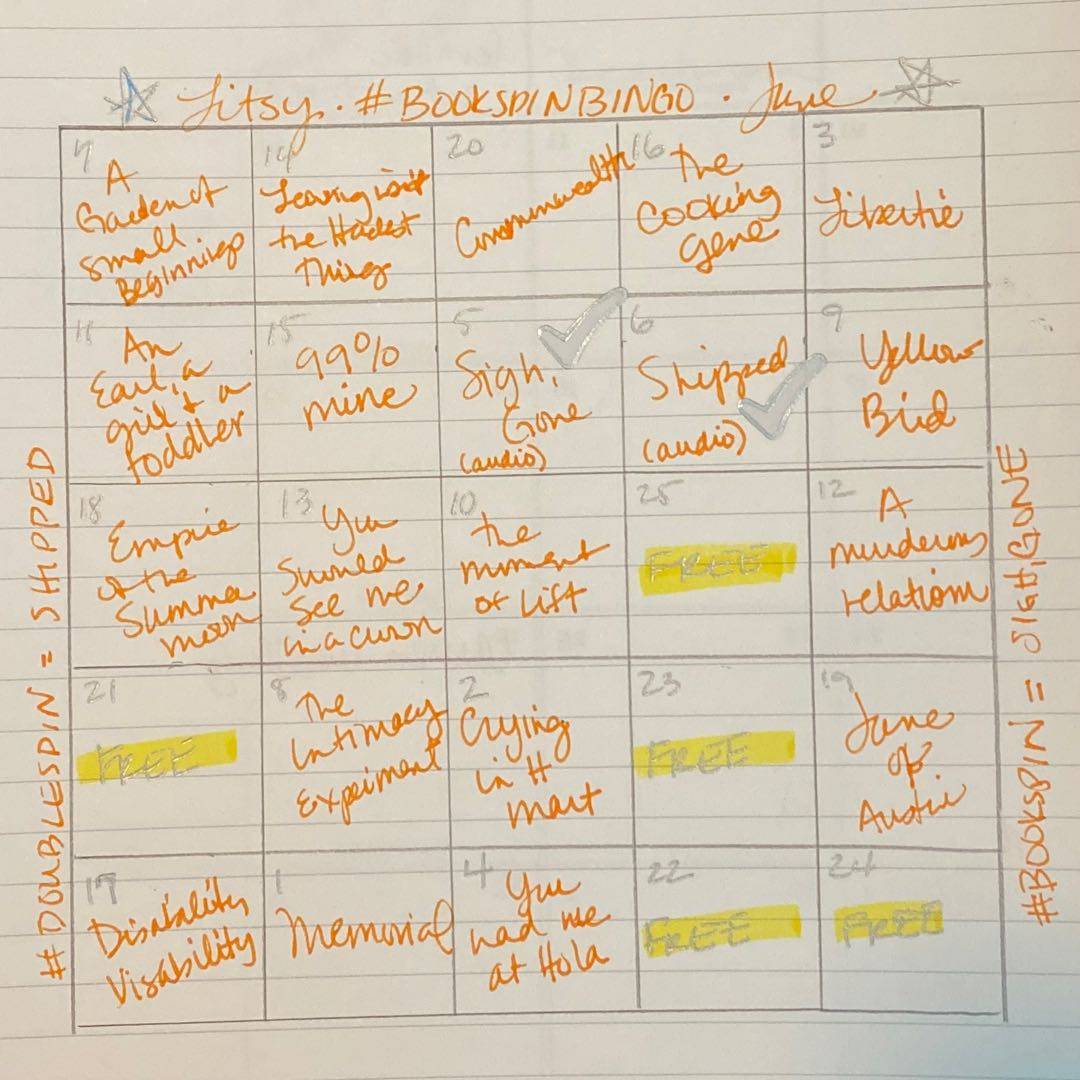 Litsy. #BOOKSPINBINGO. June.
7
A
Garden of
Small
Beginnings
14
Leaving isn't
the Hardest
Thing
20
Commonwealth
16
The
Cooking
gene
3
Libertie
11
An
Earl, a
girl & a
toddler
15
99%
mine
5
Sigh,
Gone
(audio)
6
Shipped
(audio)
9
Yellow
Bird
18
Empire
of the
Summer
moon
13
You
See me
in a crown
10
the
moment
of Lift
25
FREE
12
A
murderous
relation
21
FREE
8
The
Intimacy
Experiment
2
Crying
in H
mart
23
FREE
19
Jane
of
Austin
17
Disability
Visability
1
Memorial
4
You
had me
at Hola
22
FREE
24
FREE
#DOUBLESPIN = SHIPPED
#BOOKSPIN = SIGH, GONE